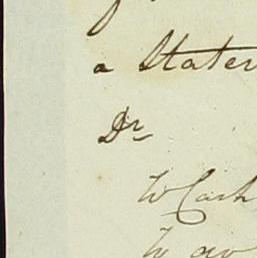 a State
Dr
To Cash
To